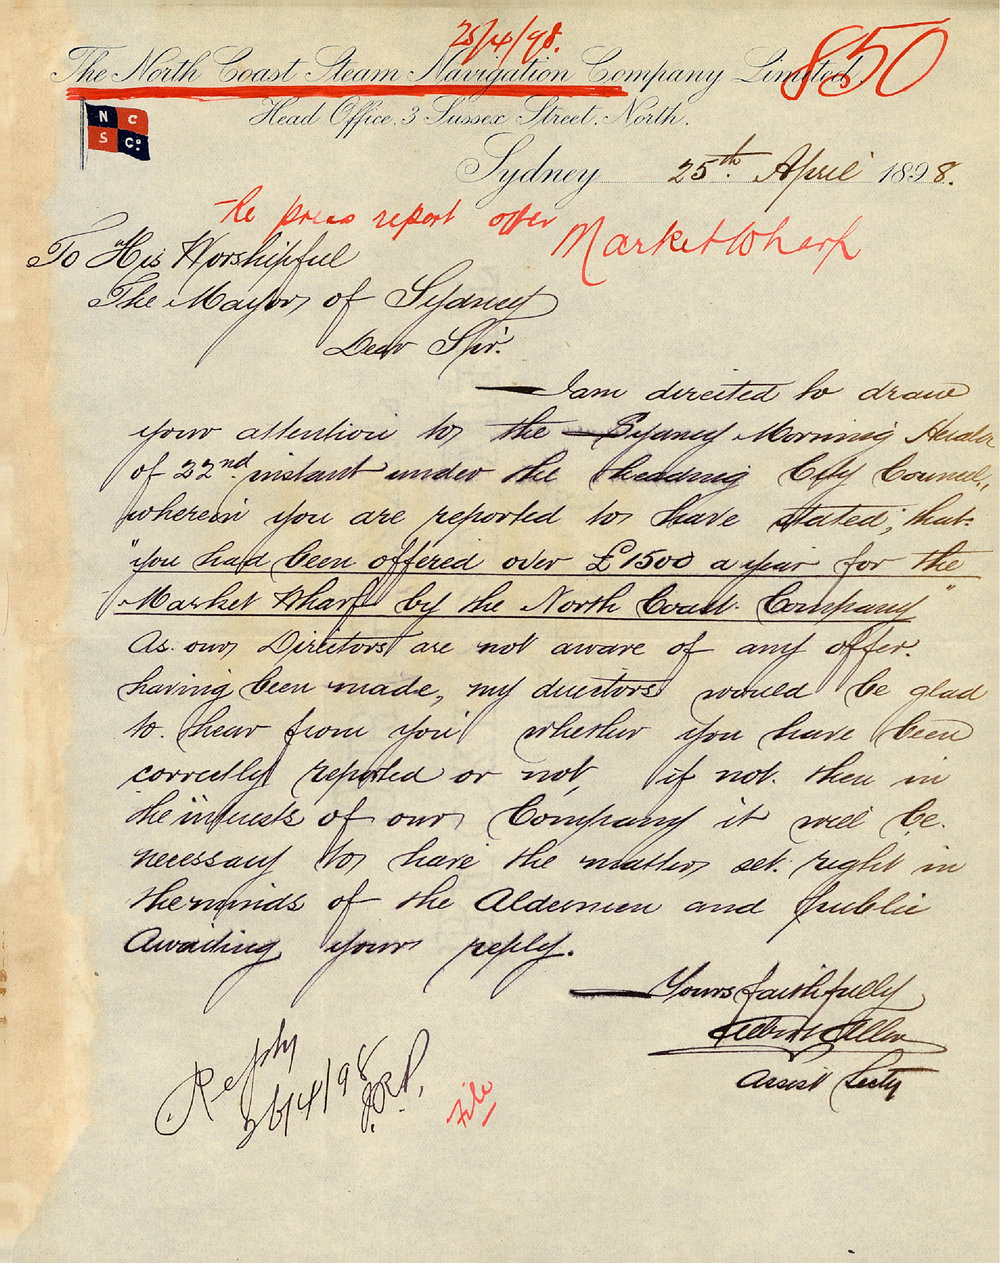 25/4/98.
850
The North Coast Steam Navigation Company Limited.
Head Office. 3 Sussex Street. North.
N C
S Co.
Sydney 25th. April 1898.
Re press report offer Market Wharf
To His Worshipful
The Mayor of Sydney
Dear Sir.
I am directed to draw
your attention to the Sydney Morning Herald
of 22nd. instant under the heading City Council,
wherein you are reported to have stated, that
"you had been offered over £1500 a year for the
Market Wharf by the North Coast Company"
As our Directors are not aware of any offer.
having been made, my directors would be glad
to hear from you whether you have been
correctly reported or not, if not then in
the interests of our Company it will be
necessary to have the matter set right in
the minds of the Aldermen and public
Awaiting your reply.
Yours faithfully
Allen
Assist Secty
Reply
26/4/98
File